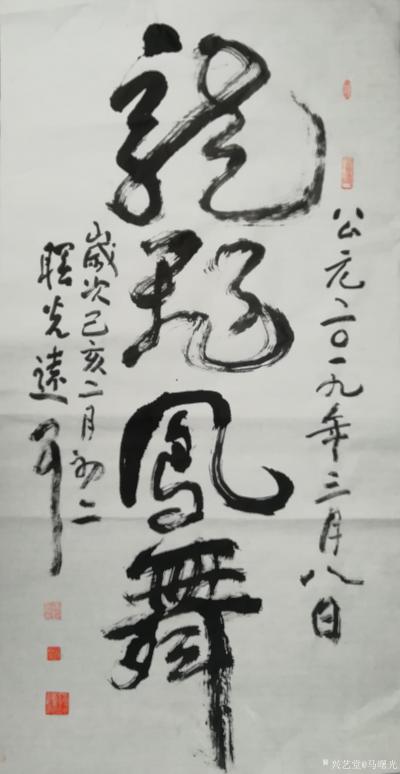 公元二〇一九年三月八日
龍飛鳳舞
歲次己亥二月初二
曙光遠
兴艺堂@马曙光